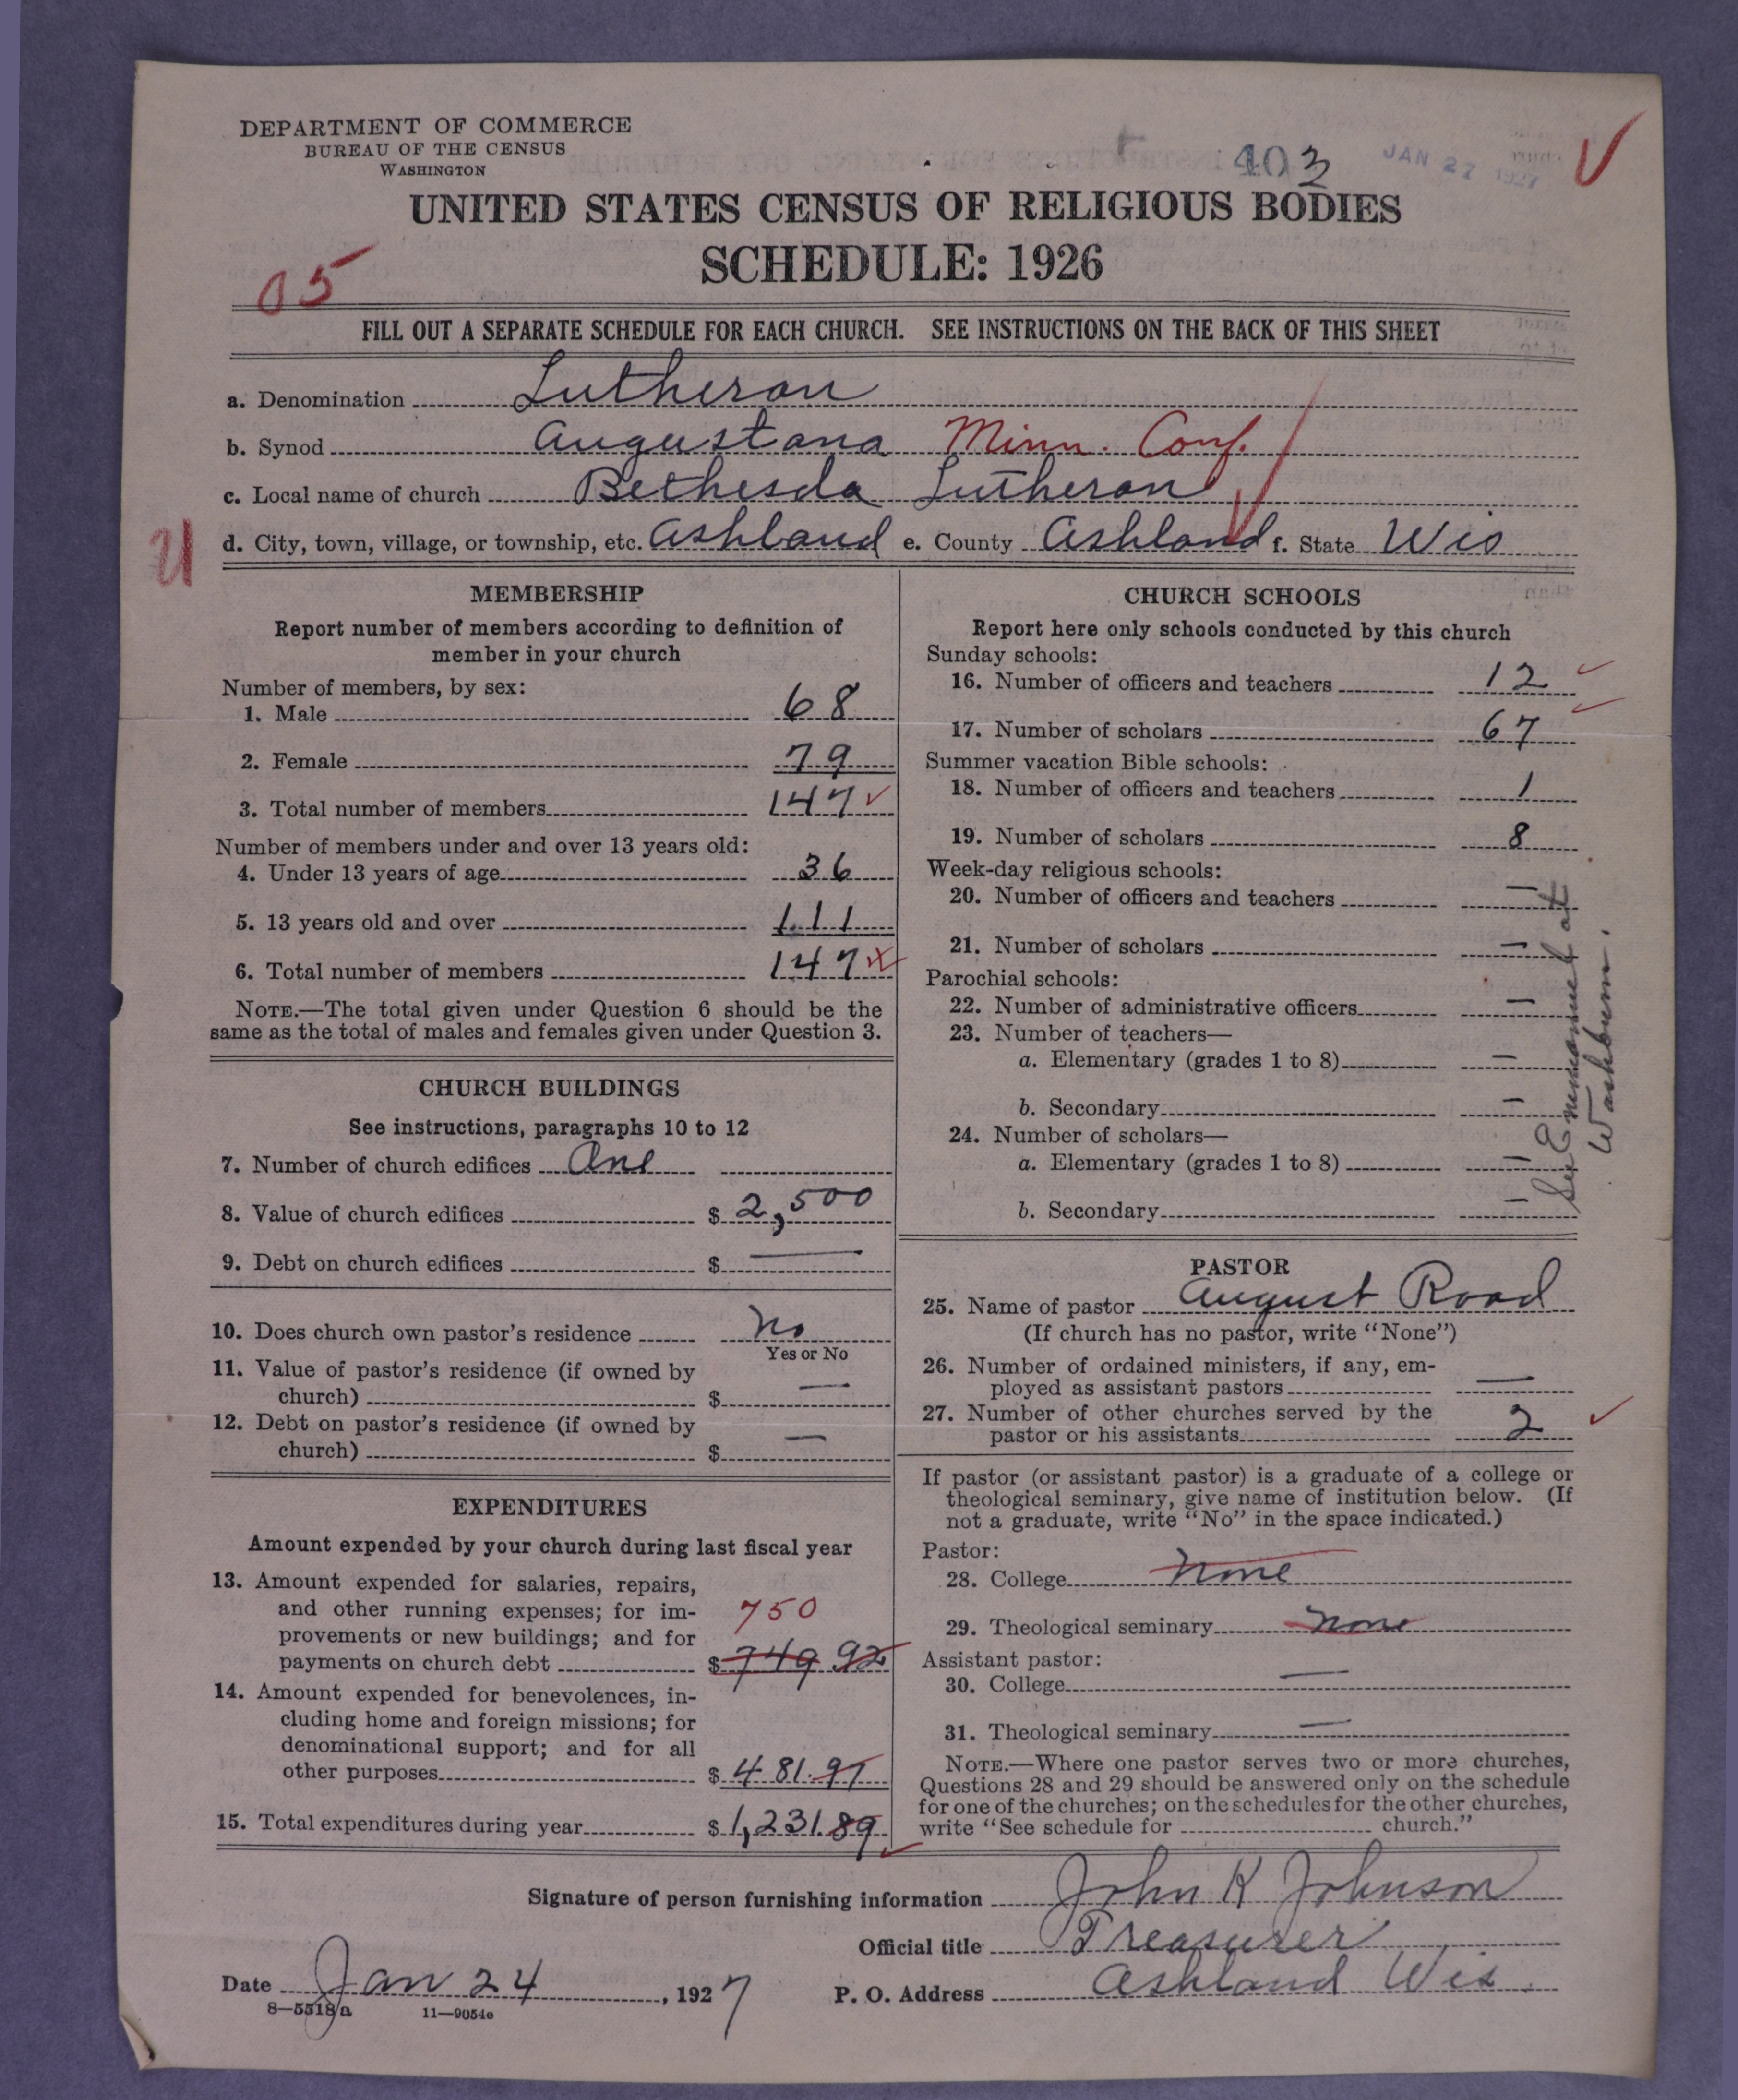 DEPARTMENT OF COMMERCE
BUREAU OF THE CENSUS
WASHINGTON
403
JAN 27 1927
UNITED STATES CENSUS OF RELIGIOUS BODIES
SCHEDULE: 1926
05
FILL OUT A SEPARATE SCHEDULE FOR EACH CHURCH. SEE INSTRUCTIONS ON THE BACK OF THIS SHEET
a. Denomination Lutheran
b. Synod Augustana Minn. Conf.
c. Local name of church Bethesda Lutheran
d. City, town, village, or township, etc. Ashland e. County Ashland f. State Wis
MEMBERSHIP
Report number of members according to definition of
member in your church
Number of members, by sex:
1. Male 68
2. Female 79
3. Total number of members 147
Number of members under and over 13 years old:
4. Under 13 years of age 36
5. 13 years old and over 111
6. Total number of members 147
NOTE.—The total given under Question 6 should be the
same as the total of males and females given under Question 3.
CHURCH BUILDINGS
See instructions, paragraphs 10 to 12
7. Number of church edifices One
8. Value of church edifices $ 2,500
9. Debt on church edifices $ —
10. Does church own pastor's residence No
Yes or No
11. Value of pastor's residence (if owned by
church) $ —
12. Debt on pastor's residence (if owned by
church) $ —
EXPENDITURES
Amount expended by your church during last fiscal year
13. Amount expended for salaries, repairs,
and other running expenses; for im-
750
provements or new buildings; and for
payments on church debt $ 749 92
14. Amount expended for benevolences, in-
cluding home and foreign missions; for
denominational support; and for all
other purposes $ 481.97
15. Total expenditures during year $ 1,231.89
CHURCH SCHOOLS
Report here only schools conducted by this church
Sunday schools:
16. Number of officers and teachers 12
17. Number of scholars 67
Summer vacation Bible schools:
18. Number of officers and teachers 1
19. Number of scholars 8
Week-day religious schools:
20. Number of officers and teachers —
21. Number of scholars —
Parochial schools:
22. Number of administrative officers —
23. Number of teachers—
a. Elementary (grades 1 to 8) —
b. Secondary —
24. Number of scholars—
a. Elementary (grades 1 to 8) —
b. Secondary —
See Emmanuel at
Washburn.
PASTOR
25. Name of pastor August Road
(If church has no pastor, write "None")
26. Number of ordained ministers, if any, em-
ployed as assistant pastors —
27. Number of other churches served by the
pastor or his assistants 2
If pastor (or assistant pastor) is a graduate of a college or
theological seminary, give name of institution below. (If
not a graduate, write "No" in the space indicated.)
Pastor:
28. College None
29. Theological seminary None
Assistant pastor:
30. College —
31. Theological seminary —
NOTE.—Where one pastor serves two or more churches,
Questions 28 and 29 should be answered only on the schedule
for one of the churches; on the schedules for the other churches,
write "See schedule for church."
Signature of person furnishing information John K Johnson
Official title Treasurer
Date Jan 24, 1927
P. O. Address Ashland Wis.
8—5518a 11—9054c